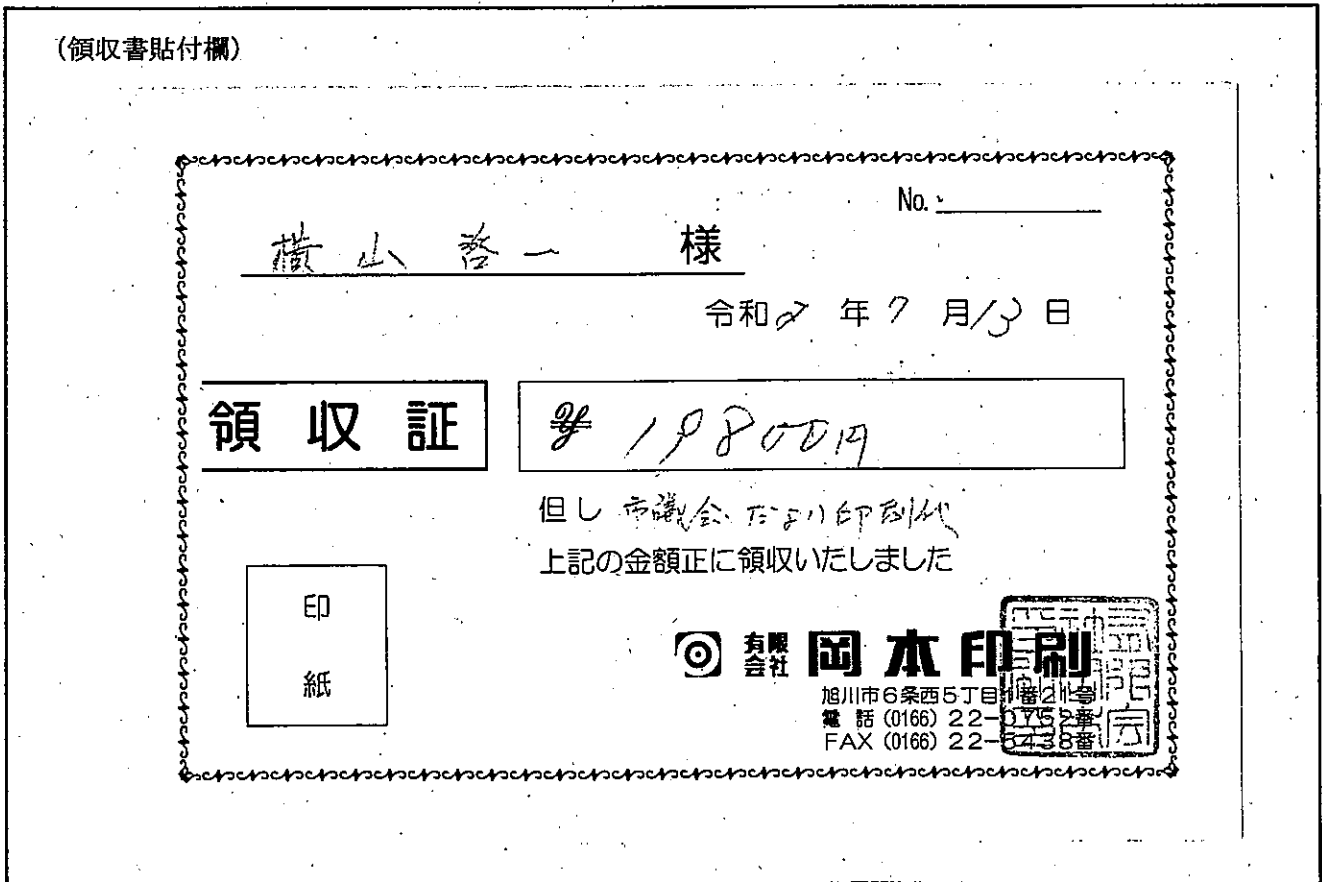 (領収書貼付欄)
No.
横山啓一 様
令和2年7月13日
領収証
¥19800円
但し 市議会だより印刷代
上記の金額正に領収いたしました
印紙
有限会社 岡本印刷
旭川市6条西5丁目1番21号
電話(0166)22-0759番
FAX(0166)22-5438番